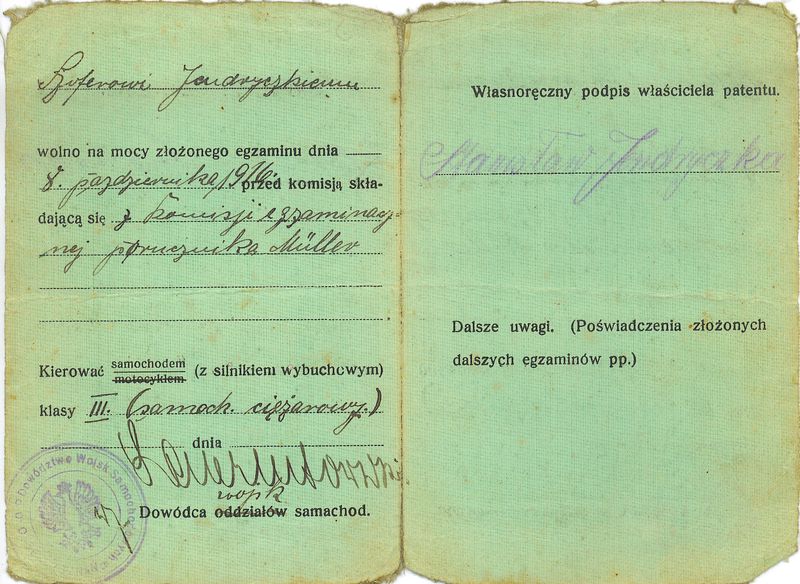 Szoferowi Jendryczkiemu
wolno na mocy złożonego egzaminu dnia
8. października 1916. przed komisją skła-
dającą się z Komisji egzaminacyj-
nej porucznika Müller
Kierować samochodem
motocyklem (z silnikiem wybuchowym)
klasy III. (samoch. ciężarowy.)
dnia
wojsk
Dowódca oddziałów samochod.
Dowództwo Wojsk Samochod
Własnoręczny podpis właściciela patentu.
Stanisław Jendryczka
Dalsze uwagi. (Poświadczenia złożonych
dalszych egzaminów pp.)